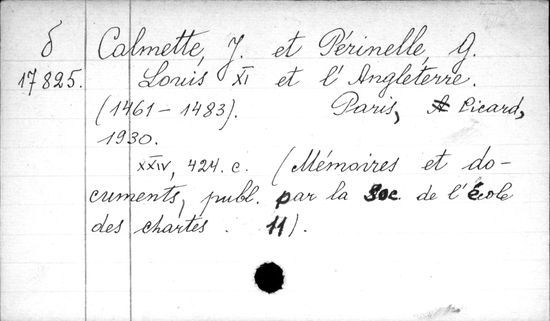 б Calmette, J. et Périnelle, G.
17825. Louis XI et l'Angleterre.
(1461 – 1483). Paris, A Picard,
1930.
XXIV, 424. c. (Mémoires et do-
cuments, publ. par la Soc. de l'École
des chartes. 11).